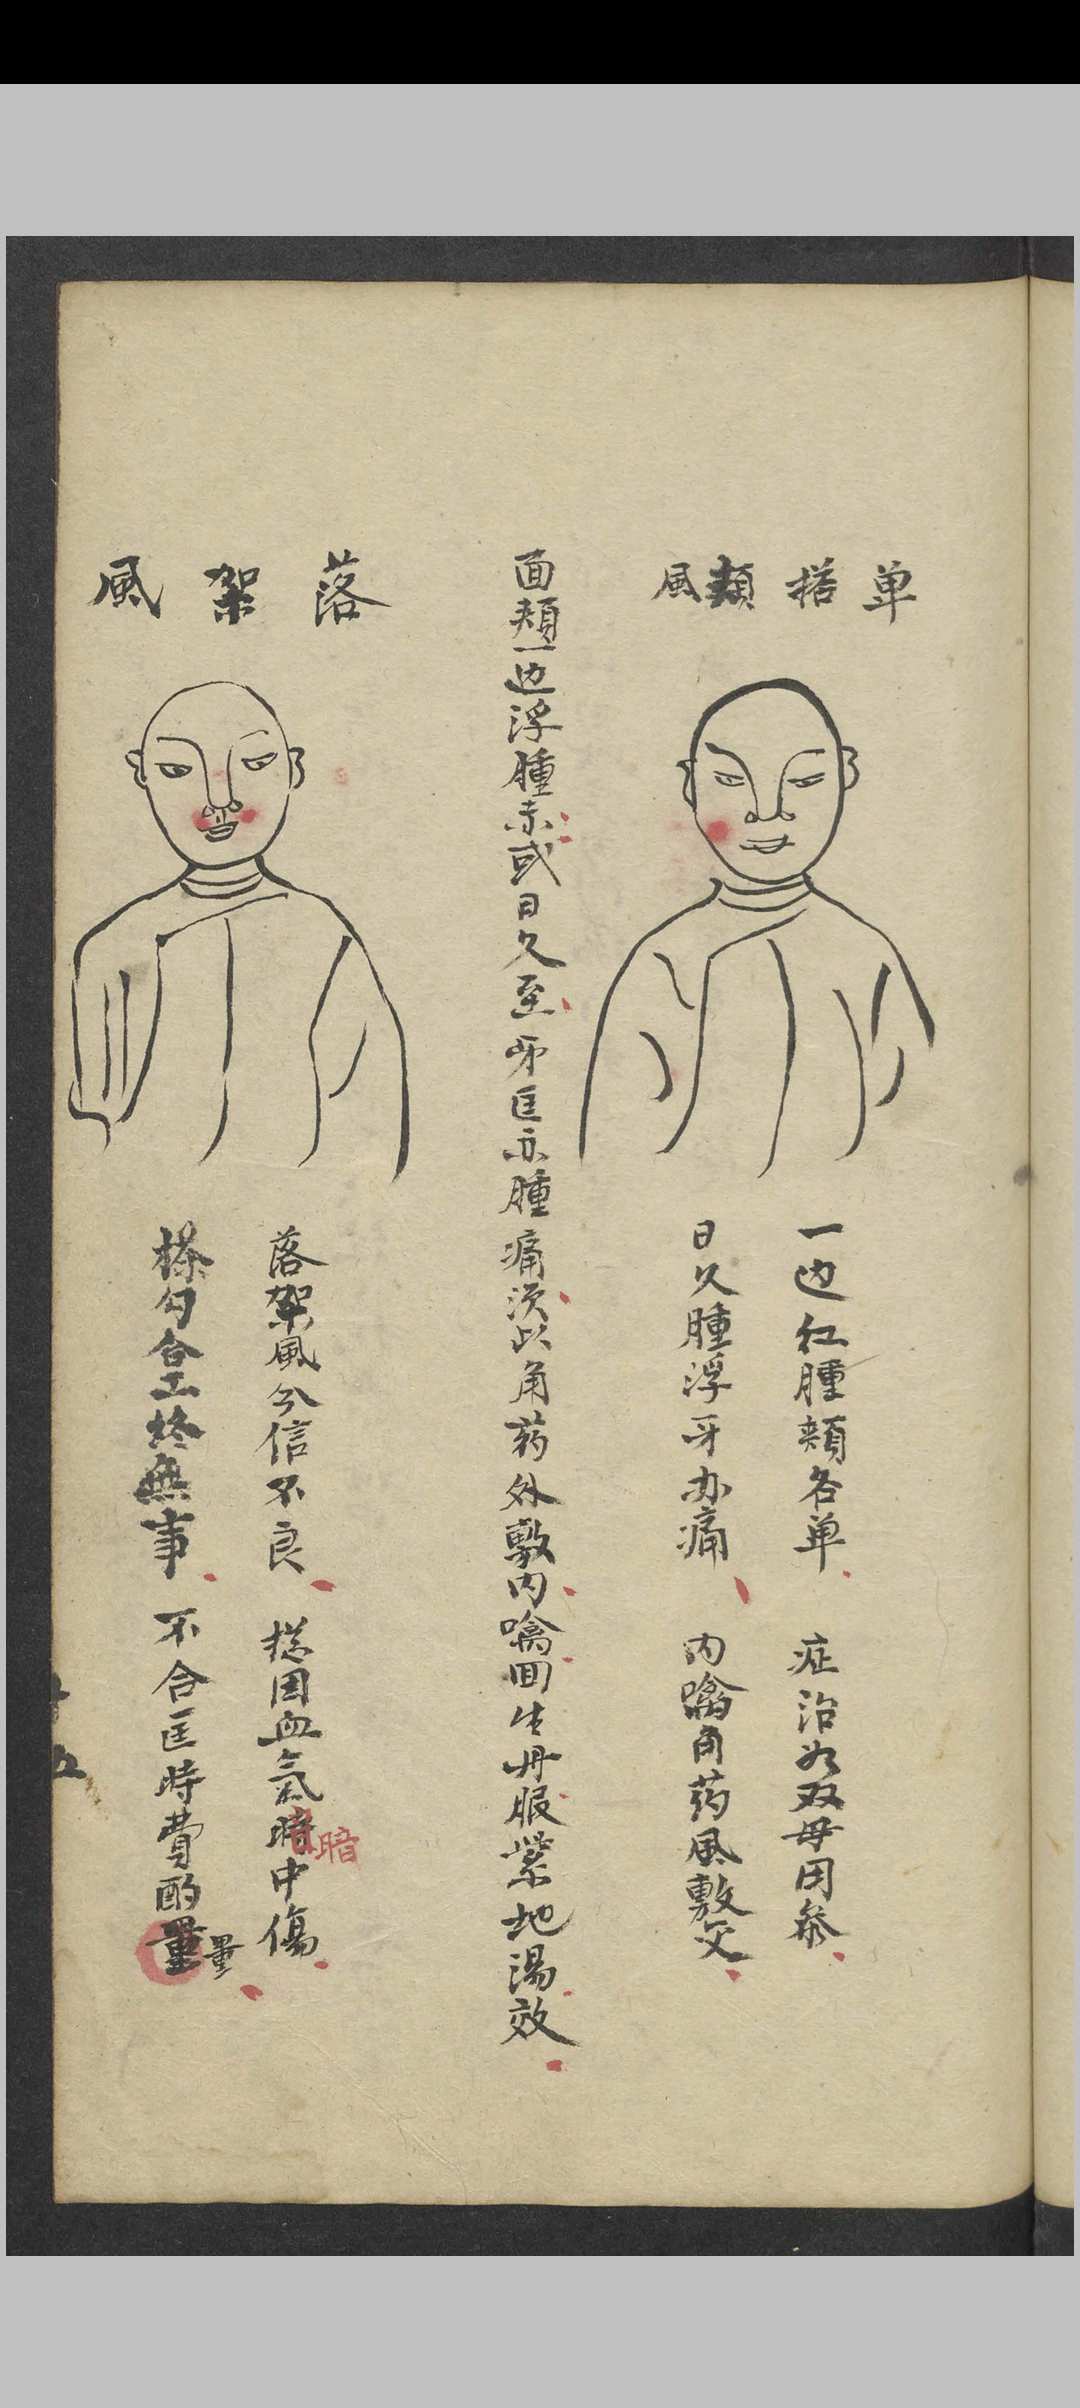 单搭頬風
一边红腫頬名单 症治如双毋用参
日久腫浮牙亦痛 内噙角药風敷父
面頬一边浮腫赤或日久至牙匡亦腫痛须此角药外敷内噙回生丹服紫地湯效
落架風
落架風兮信不良 总因血氣暗中傷
暗
搽匀合工终無事 不合匡時費酌量
量